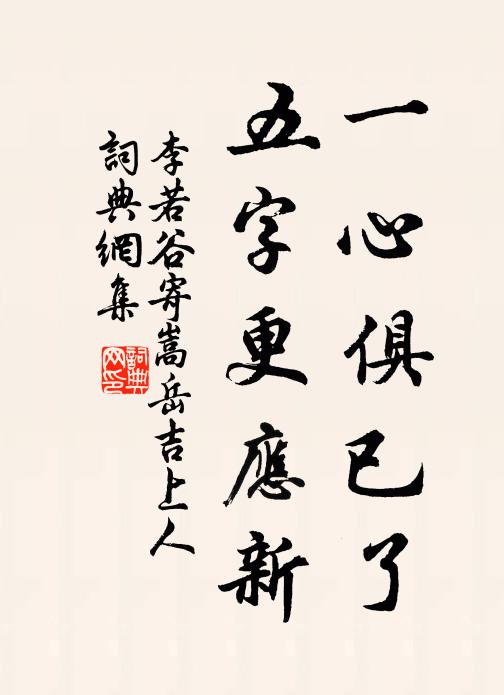 一心俱已了
五字更應新
李若谷寄嵩岳吉上人
詞典網集
詞典
网印